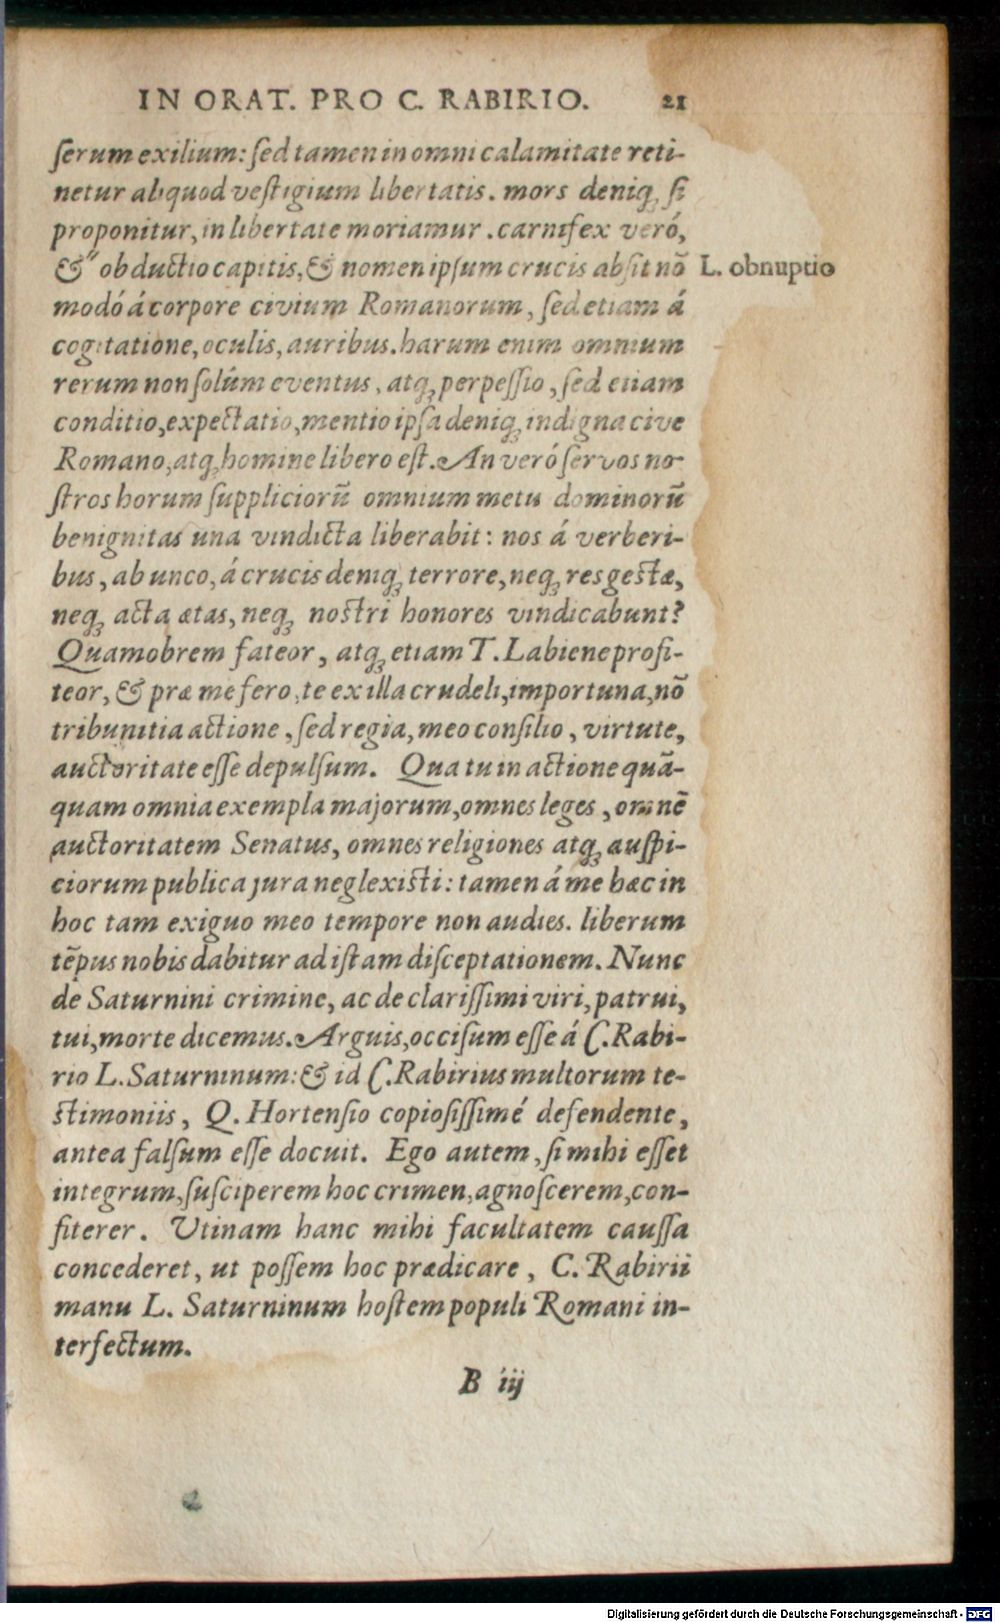 IN ORAT. PRO C. RABIRIO. 21
serum exilium: sed tamen in omni calamitate reti-
netur aliquod vestigium libertatis. mors deniq; si
proponitur, in libertate moriamur. carnifex veró,
&" obductio capitis, & nomen ipsum crucis absit nō L. obnuptio
modó á corpore civium Romanorum, sed etiam á
cogitatione, oculis, auribus. harum enim omnium
rerum non solúm eventus, atq; perpessio, sed etiam
conditio, expectatio, mentio ipsa deniq; indigna cive
Romano, atq; homine libero est. An veró servos no-
stros horum suppliciorū omnium metu dominorū
benignitas una vindicta liberabit: nos á verberi-
bus, ab unco, á crucis deniq; terrore, neq; res gestæ,
neq; acta ætas, neq; nostri honores vindicabunt?
Quamobrem fateor, atq; etiam T. Labiene profi-
teor, & præ me fero, te ex illa crudeli, importuna, nō
tribunitia actione, sed regia, meo consilio, virtute,
auctoritate esse depulsum. Qua tu in actione quā-
quam omnia exempla majorum, omnes leges, omnē
auctoritatem Senatus, omnes religiones atq; auspi-
ciorum publica jura neglexisti: tamen á me hæc in
hoc tam exiguo meo tempore non audies. liberum
tēpus nobis dabitur ad istam disceptationem. Nunc
de Saturnini crimine, ac de clarissimi viri, patrui,
tui, morte dicemus. Arguis, occisum esse á C. Rabi-
rio L. Saturninum: & id C. Rabirius multorum te-
stimoniis, Q. Hortensio copiosissimé defendente,
antea falsum esse docuit. Ego autem, si mihi esset
integrum, susciperem hoc crimen, agnoscerem, con-
fiterer. Utinam hanc mihi facultatem caussa
concederet, ut possem hoc prædicare, C. Rabirii
manu L. Saturninum hostem populi Romani in-
terfectum.
B iij
Digitalisierung gefördert durch die Deutsche Forschungsgemeinschaft - DFG